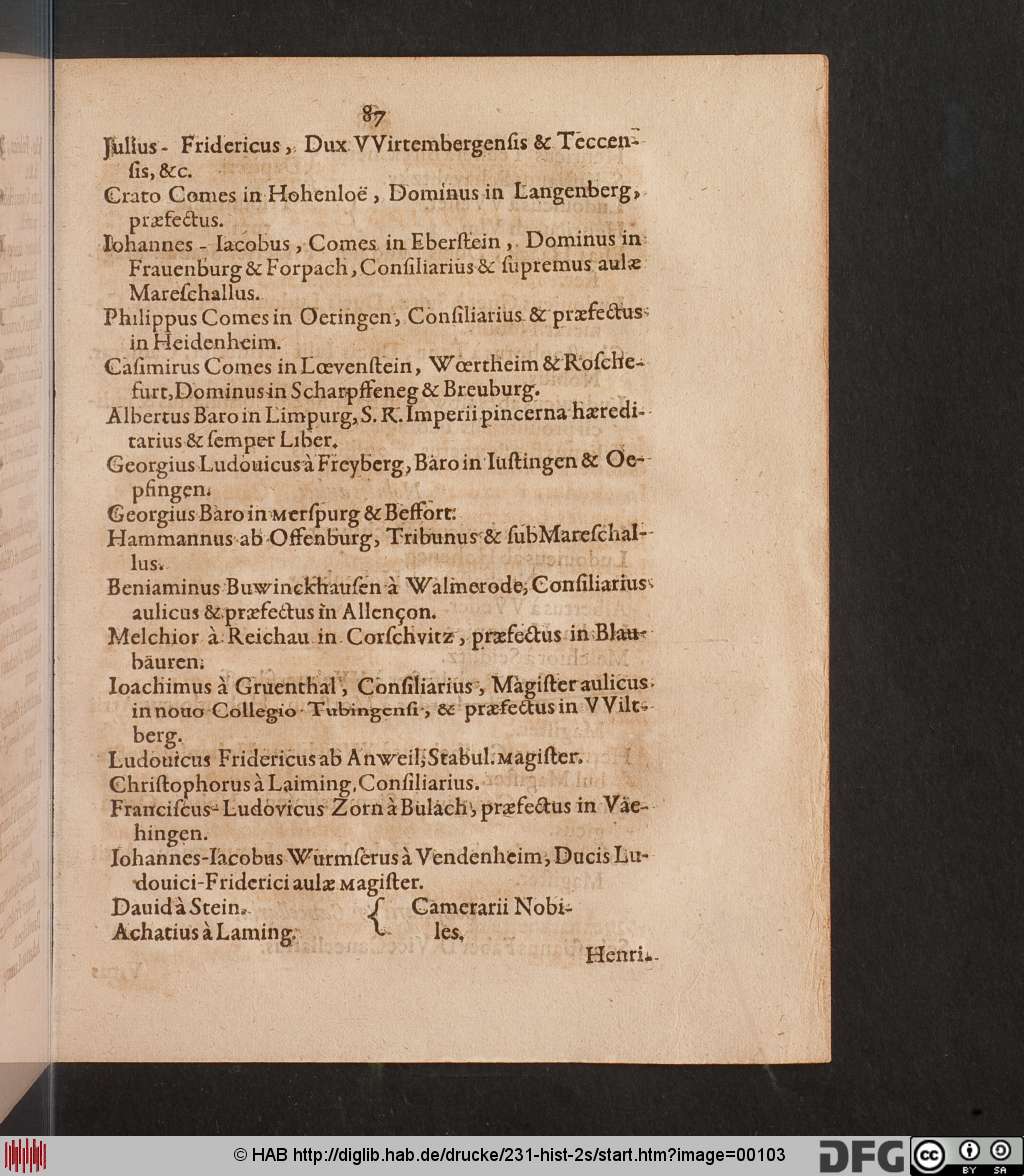 87
Julius- Fridericus, Dux VVirtembergenſis & Teccen-
ſis, &c.
Crato Comes in Hohenloë, Dominus in Langenberg,
præfectus.
Iohannes - Iacobus, Comes in Eberſtein, Dominus in
Frauenburg & Forpach, Conſiliarius & ſupremus aulæ
Mareſchallus.
Philippus Comes in Oetingen, Conſiliarius & præfectus
in Heidenheim.
Caſimirus Comes in Lœvenſtein, Wœrtheim & Roſche-
furt, Dominus in Scharpffeneg & Breuburg.
Albertus Baro in Limpurg, S. R. Imperii pincerna hæredi-
tarius & ſemper Liber.
Georgius Ludouicus à Freyberg, Baro in Iuſtingen & Oe-
pfingen.
Georgius Baro in Merſpurg & Beffort.
Hammannus ab Offenburg, Tribunus & ſubMareſchal-
lus.
Beniaminus Buwinckhauſen à Walmerode, Conſiliarius
aulicus & præfectus in Allençon.
Melchior à Reichau in Corſchvitz, præfectus in Blau-
bäuren.
Ioachimus à Gruenthal, Conſiliarius, Magiſter aulicus
in nouo Collegio Tubingenſi, & præfectus in VVilt-
berg.
Ludouicus Fridericus ab Anweil, Stabul. Magiſter.
Chriſtophorus à Laiming, Conſiliarius.
Franciſcus-Ludovicus Zorn à Bulach, præfectus in Väe-
hingen.
Iohannes-Iacobus Wurmſerus à Vendenheim, Ducis Lu-
douici-Friderici aulæ Magiſter.
Dauid à Stein. { Camerarii Nobi-
Achatius à Laming. les.
Henri-
© HAB http://diglib.hab.de/drucke/231-hist-2s/start.htm?image=00103
DFG
cc BY SA